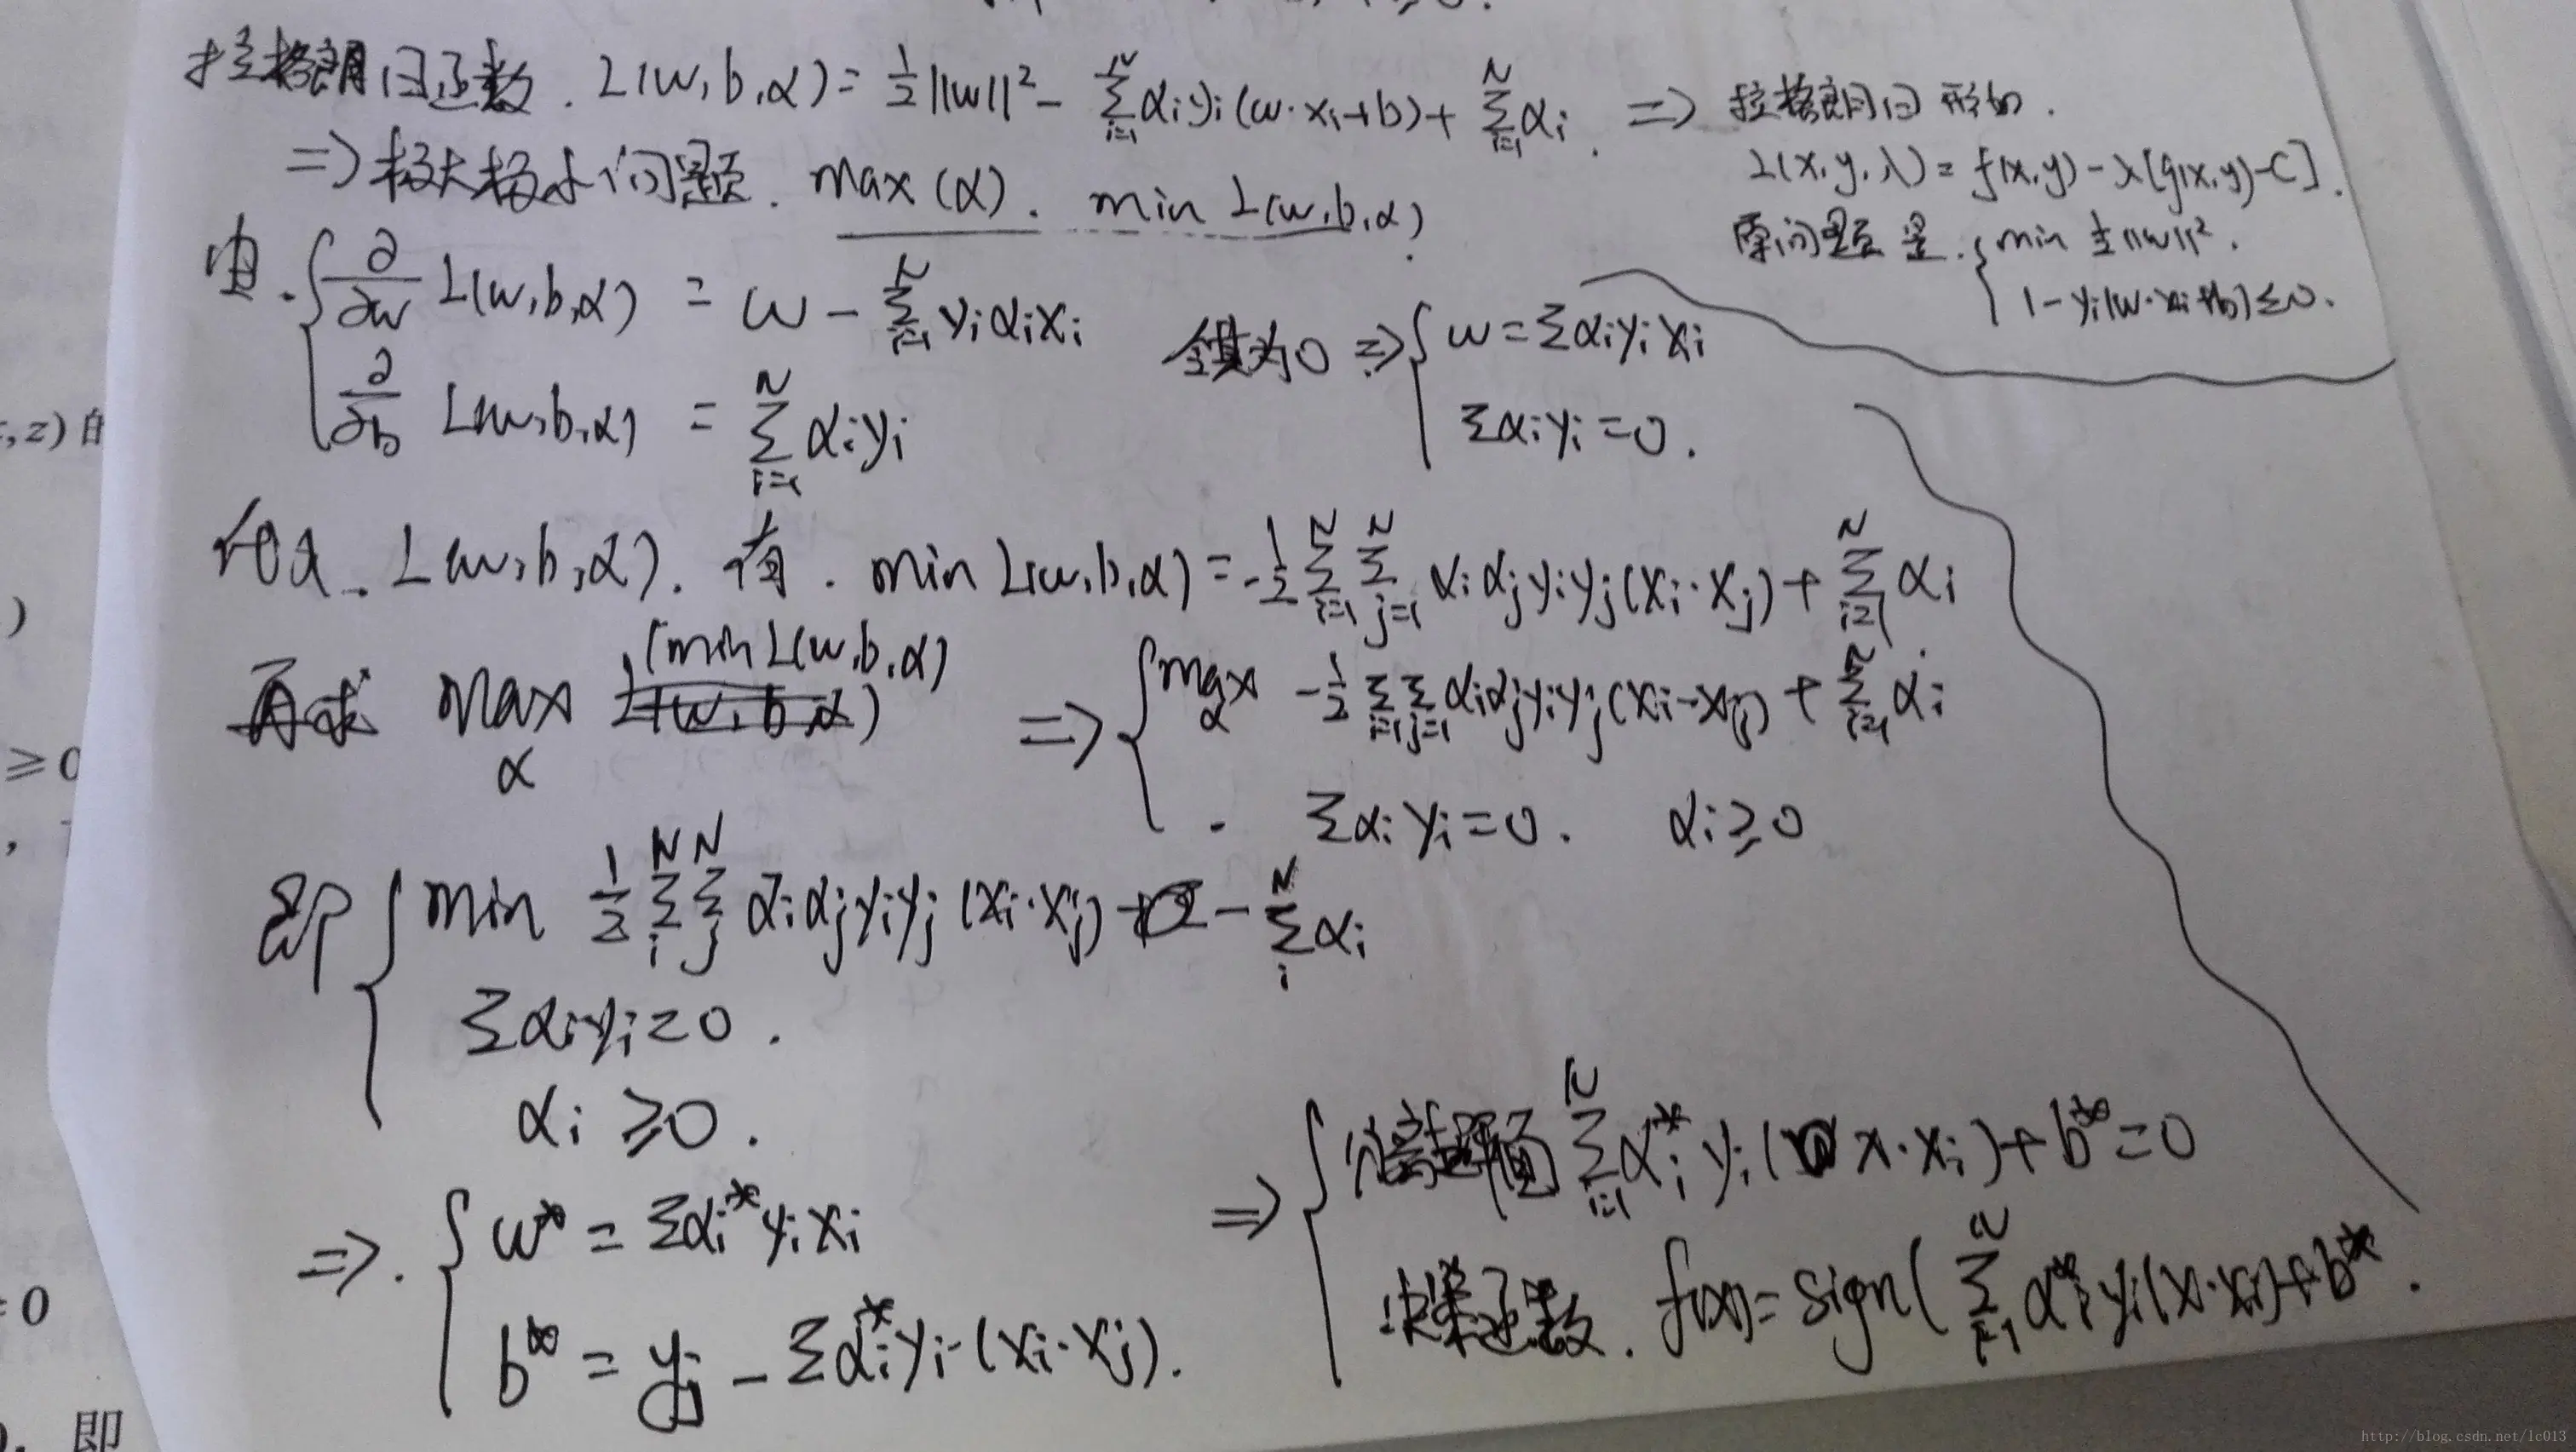 拉格朗日函数. L(w,b,α) = 1/2||w||² - Σ_{i=1}^{N} αi yi (w·xi+b) + Σ_{i=1}^{N} αi. => 拉格朗日形如.
L(x,y,λ) = f(x,y) - λ[g(x,y)-C].
原问题是. { min 1/2||w||².
1-yi(w·xi+b)≤0.
=> 极大极小问题. max(α). min L(w,b,α).
由. { ∂/∂w L(w,b,α) = w - Σ_{i=1}^{N} yi αi xi
∂/∂b L(w,b,α) = Σ_{i=1}^{N} αi yi
令其为0 => { w = Σαi yi xi
Σαi yi = 0.
代入. L(w,b,α). 有. min L(w,b,α) = -1/2 Σ_{i=1}^{N} Σ_{j=1}^{N} αi αj yi yj (xi·xj) + Σ_{i=1}^{N} αi
再求 max_α (min L(w,b,α) L(w,b,α)
=> { max_α -1/2 Σ_{i=1} Σ_{j=1} αi αj yi yj (xi-xj) + Σ_{i=1}^{N} αi
. Σαi yi = 0. αi ≥ 0
即 { min 1/2 Σ_i^N Σ_j^N αi αj yi yj (xi·xj) - Σ_i^N αi
Σαi yi = 0.
αi ≥ 0.
=>. { w* = Σαi* yi xi
b* = yj - Σαi* yi·(xi·xj).
=> { 分离超平面 Σ_{i=1}^{N} αi* yi (x·xi) + b* = 0
决策函数. f(x) = sign( Σ_{i=1}^{N} αi* yi (x·xi) + b*.
,z) 的
)
≥ 0
,
= 0
即
http://blog.csdn.net/lc013